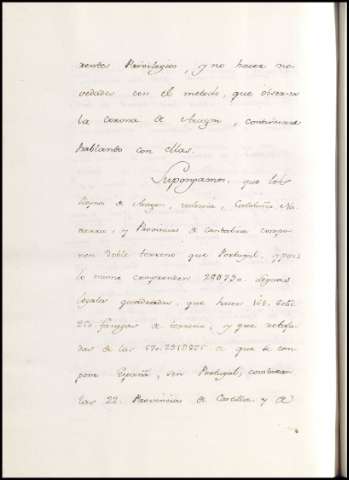 rentes Privilegios, y no hacer no
vedades con el metodo, que observa
la corona de Aragon, continuare
hablando con ellas.
Supongamos, que los
Reynos de Aragon, Valencia, Cataluña, Na
varra, y Provincias de Cantabria compo
nen doble terreno que Portugal, y por
lo mismo comprenden leguas
legales quadradas, que hacen
fanegas de terreno, y que rebaja
das de las a que se com
pone España, sin Portugal,
las 22. Provincias de Castilla, y